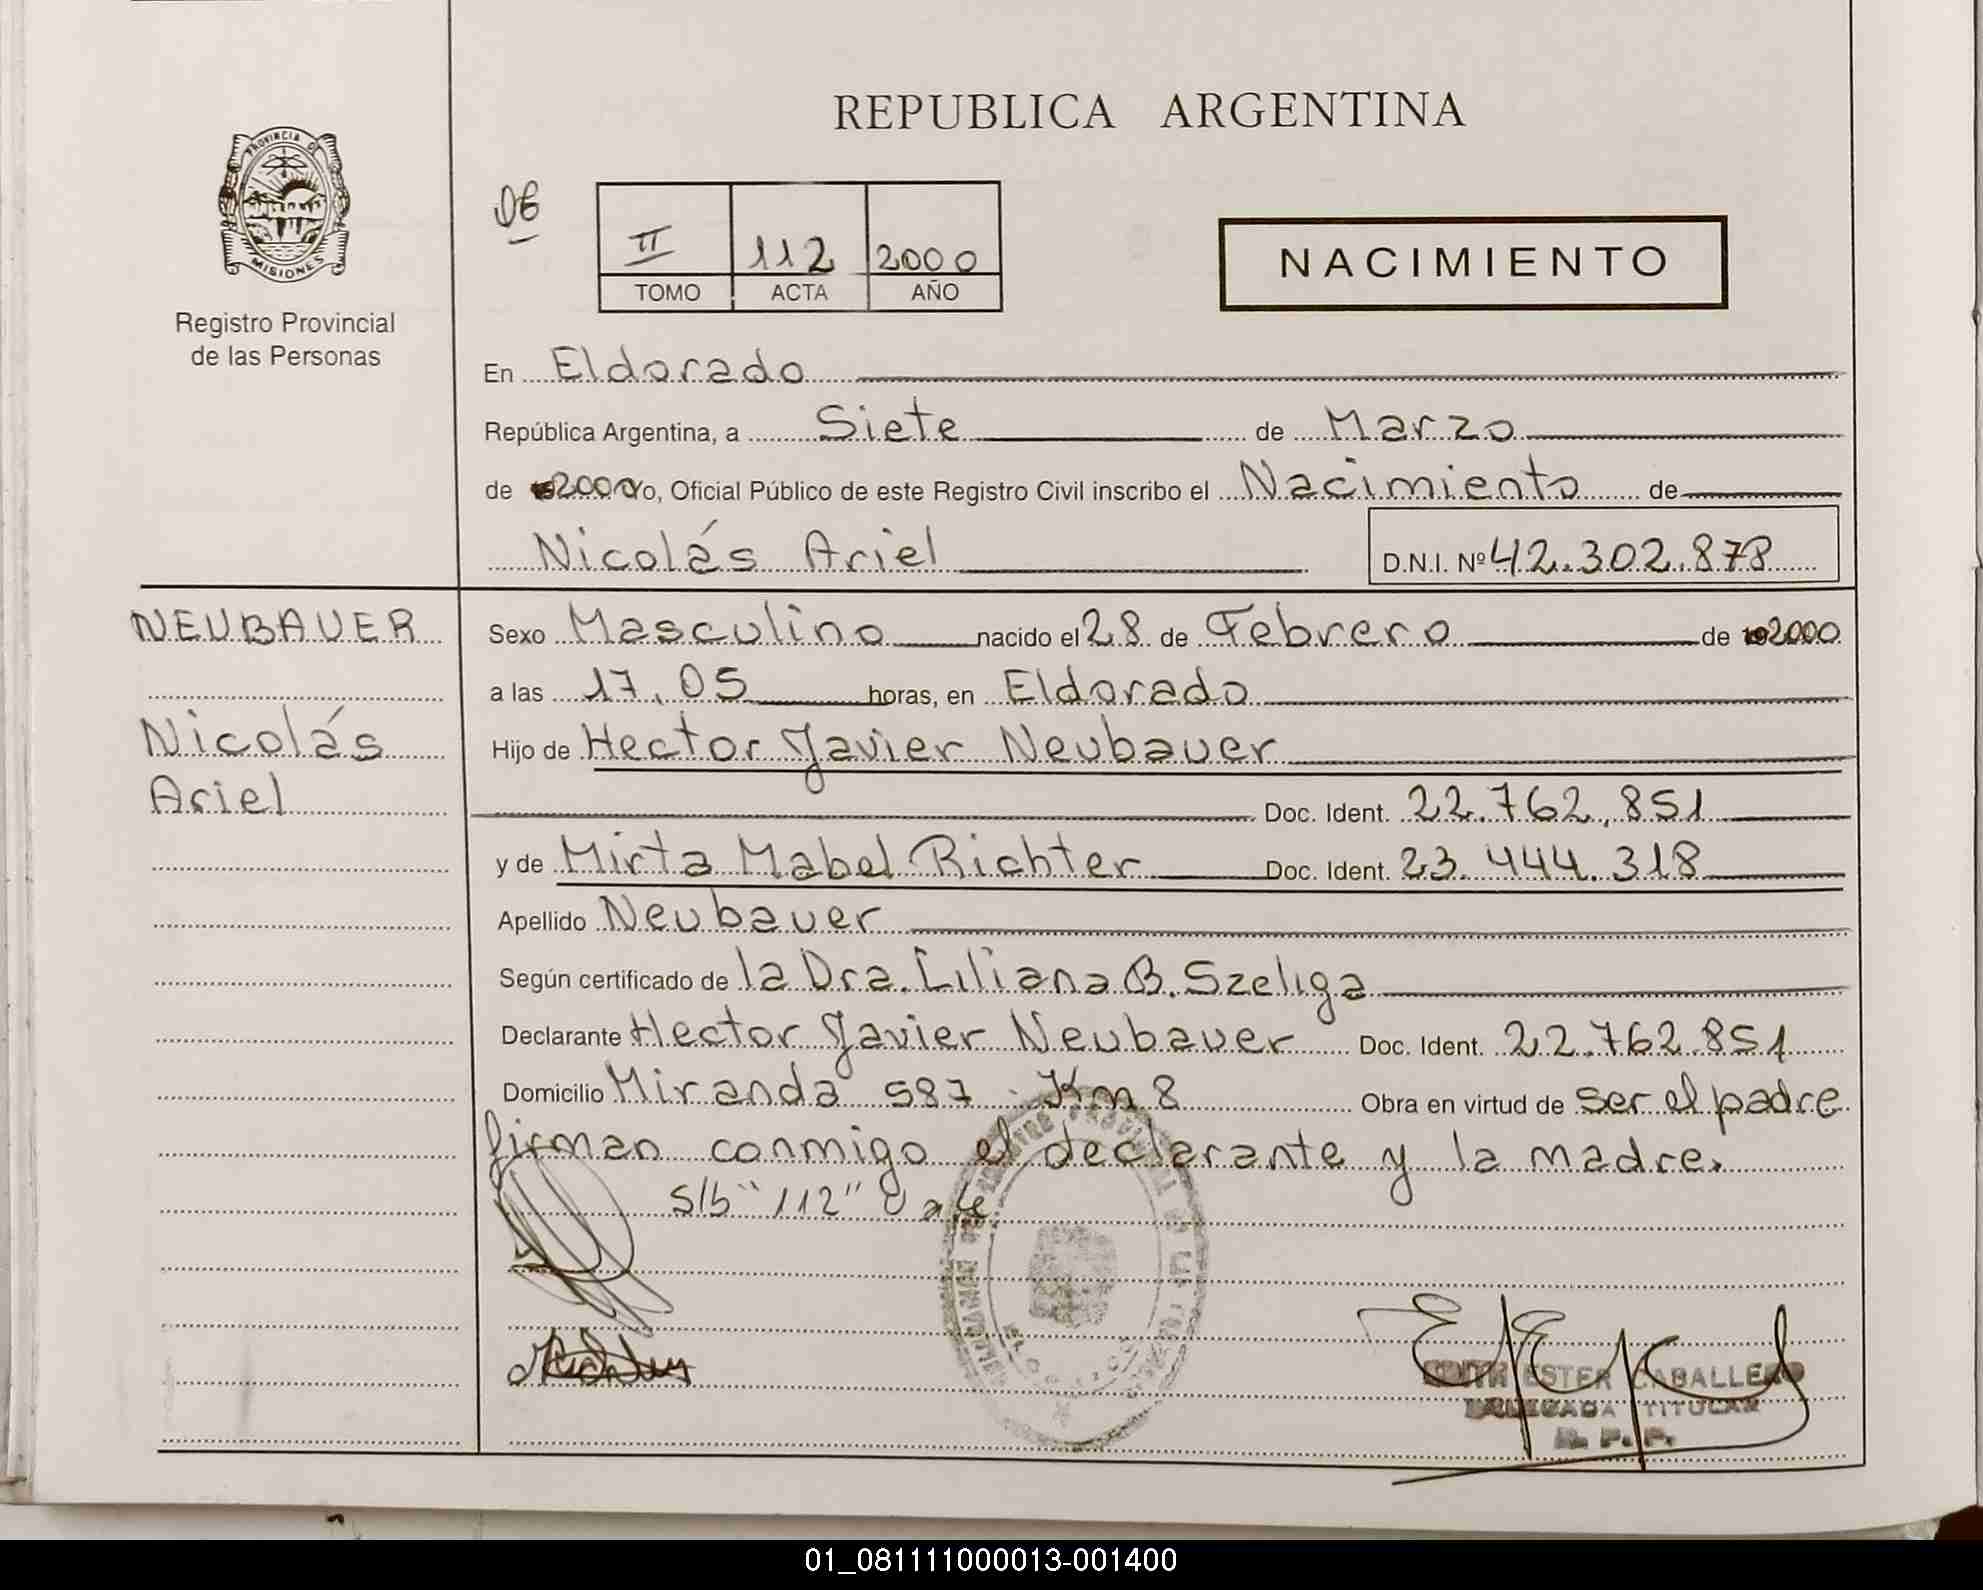 REPUBLICA ARGENTINA
PROVINCIA DE
MISIONES
Registro Provincial
de las Personas
II 112 2000
TOMO ACTA AÑO
NACIMIENTO
En Eldorado
República Argentina, a Siete de Marzo
de 2000 Yo, Oficial Público de este Registro Civil inscribo el Nacimiento de
Nicolás Ariel D.N.I. Nº 42.302.878
NEUBAUER
Nicolás
Ariel
Sexo Masculino nacido el 28 de Febrero de 2000
a las 17.05 horas, en Eldorado
Hijo de Hector Javier Neubauer
Doc. Ident. 22.762.851
y de Mirta Mabel Richter Doc. Ident. 23.444.318
Apellido Neubauer
Según certificado de la Dra. Liliana B. Szeliga
Declarante Hector Javier Neubauer Doc. Ident. 22.762.851
Domicilio Miranda 587 Km 8 Obra en virtud de ser el padre
firman conmigo el declarante y la madre.
S/b "112" Vale
ESTER CABALLERO
DELEGADA TITULAR
R. P. P.
01_081111000013-001400